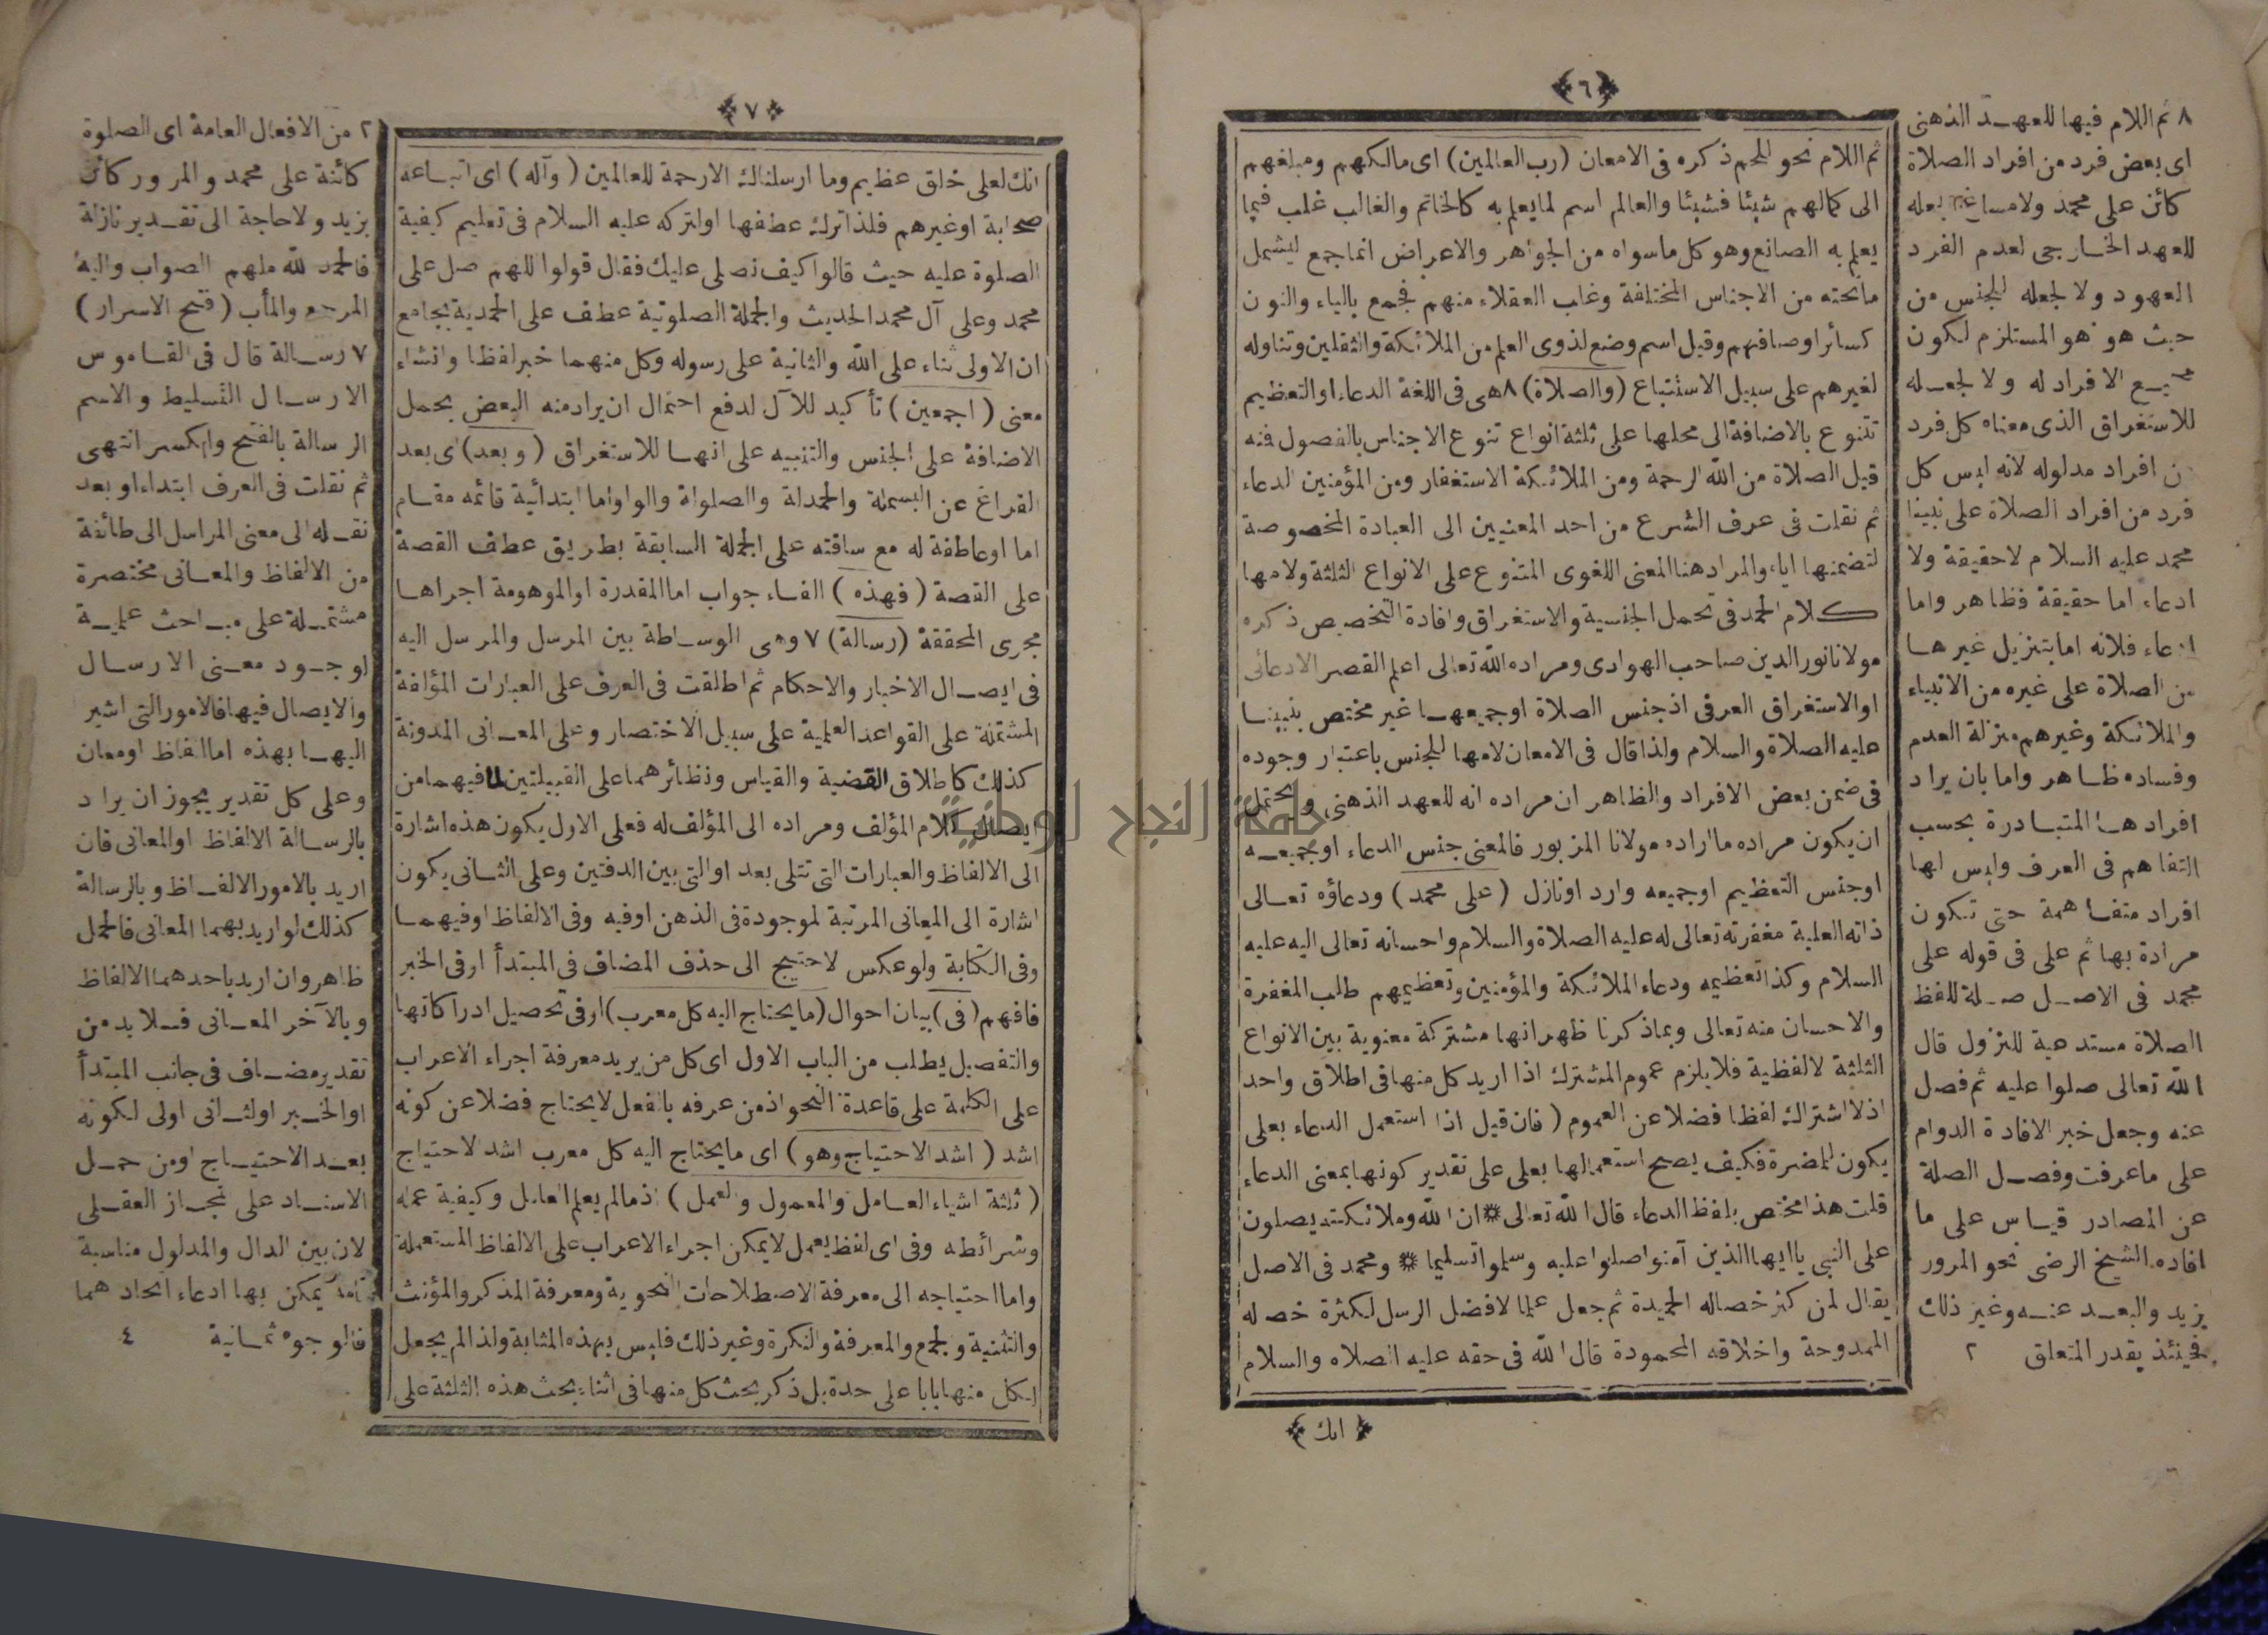 ﴿٦﴾
ثم اللام نحو للحم ذكره فى الامعان (رب العالمين) اى مالكهم ومبلغهم
الى كمالهم شيئا فشيئا والعالم اسم لما يعلم به كالخاتم والغالب غلب فيما
يعلم به الصانع وهو كل ما سواه من الجواهر والاعراض انما جمع ليشمل
ما تحته من الاجناس المختلفة وغلب العقلاء منهم فجمع بالياء والنون
كسائر اوصافهم وقيل اسم وضع لذوى العلم من الملائكة والثقلين وتناوله
لغيرهم على سبيل الاستتباع (والصلاة) ٨ هى فى اللغة الدعاء او التعظيم
تتنوع بالاضافة الى محلها على ثلثة انواع تنوع الاجناس بالفصول فنه
قيل الصلاة من الله الرحمة ومن الملائكة الاستغفار ومن المؤمنين الدعاء
ثم نقلت فى عرف الشرع من احد المعنيين الى العبادة المخصوصة
لتضمنها اياه والمراد هنا المعنى اللغوى المتنوع على الانواع الثلثة ولامها
كلام الحمد فى تحمل الجنسية والاستغراق وافادة التخصيص ذكره
مولانا نور الدين صاحب الهوادى ومراده الله تعالى اعلم القصر الادعائى
او الاستغراق العرفى اذ جنس الصلاة او جميعها غير مختص بنبينا
عليه الصلاة والسلام ولذا قال فى الامعان لامها للجنس باعتبار وجوده
فى ضمن بعض الافراد والظاهر ان مراده انه للعهد الذهنى ويحتمل
ان يكون مراده ما اراده مولانا المزبور فالمعنى جنس الدعاء او جميعه
او جنس التعظيم او جميعه وارد او نازل (على محمد) ودعاؤه تعالى
ذاته العلية مغفرته تعالى له عليه الصلاة والسلام واحسانه تعالى اليه عليه
السلام وكذا تعظيمه ودعاء الملائكة والمؤمنين وتعظيمهم طلب المغفرة
والاحسان منه تعالى وبما ذكرنا ظهر انها مشتركة معنوية بين الانواع
الثلثة لا لفظية فلا يلزم عموم المشترك اذا اريد كل منها فى اطلاق واحد
اذ لا اشتراك لفظا فضلا عن العموم (فان قيل اذا استعمل الدعاء بعلى
يكون للمضرة فكيف يصح استعمالها بعلى على تقدير كونها بمعنى الدعاء
قلت هذا مختص بلفظ الدعاء قال الله تعالى * ان الله وملائكته يصلون
على النبى يا ايها الذين آمنوا صلوا عليه وسلموا تسليما * ومحمد فى الاصل
يقال لمن كثر خصاله الحميدة ثم جعل علما لافضل الرسل لكثرة خصله
الممدوحة واخلاقه المحمودة قال الله فى حقه عليه الصلاه والسلام
﴿انك﴾
٨ ثم اللام فيها للعهد الذهنى
اى بعض فرد من افراد الصلاة
كائن على محمد ولا مساغ بجعله
للعهد الخارجى لعدم الفرد
المعهود ولا لجعله للجنس من
حيث هو هو المستلزم لكون
جميع الافراد له ولا لجعله
للاستغراق الذى معناه كل فرد
من افراد مدلوله لانه ليس كل
فرد من افراد الصلاة على نبينا
محمد عليه السلام لا حقيقة ولا
ادعاء اما حقيقة فظاهر واما
ادعاء فلانه اما بتنزيل غيرها
من الصلاة على غيره من الانبياء
والملائكة وغيرهم منزلة العدم
وفساده ظاهر واما بان يراد
افرادها المتبادرة بحسب
التفاهم فى العرف وليس لها
افراد متفاهمة حتى تكون
مرادة بها ثم على فى قوله على
محمد فى الاصل صلة للفظ
الصلاة مستدعية للنزول قال
الله تعالى صلوا عليه ثم فصل
عنه وجعل خبر الافادة الدوام
على ما عرفت وفصل الصلة
عن المصادر قياس على ما
افاده الشيخ الرضى نحو المرور
بزيد والبعد عنه وغير ذلك
فحينئذ يقدر المتعلق ٢
﴿٧﴾
انك لعلى خلق عظيم وما ارسلناك الا رحمة للعالمين (وآله) اى اتباعه
صحابة او غيرهم فلذا ترك عطفها او لتركه عليه السلام فى تعليم كيفية
الصلوة عليه حيث قالوا كيف نصلى عليك فقال قولوا اللهم صل على
محمد وعلى آل محمد الحديث والجملة الصلوتية عطف على الحمدية بجامع
ان الاولى ثناء على الله والثانية على رسوله وكل منهما خبر لفظا وانشاء
معنى (اجمعين) تأكيد للآل لدفع احتمال ان يراد منه البعض بحمل
الاضافة على الجنس والتنبيه على انها للاستغراق (وبعد) اى بعد
الفراغ عن البسملة والحمدلة والصلواة والواو اما ابتدائية قائمه مقام
اما او عاطفة له مع ساقته على الجملة السابقة بطريق عطف القصة
على القصة (فهذه) الفاء جواب اما المقدرة او الموهومة اجراها
مجرى المحققة (رسالة) ٧ وهى الوساطة بين المرسل والمرسل اليه
فى ايصال الاخبار والاحكام ثم اطلقت فى العرف على العبارات المؤلفة
المشتملة على القواعد العلمية على سبيل الاختصار وعلى المعانى المدونة
كذلك كاطلاق القضية والقياس ونظائرهما على القبيلتين لما فيهما من
ايصال كلام المؤلف ومراده الى المؤلف له فعلى الاول يكون هذه اشارة
الى الالفاظ والعبارات التى تتلى بعد او التى بين الدفتين وعلى الثانى يكون
اشارة الى المعانى المرتبة لموجودة فى الذهن او فيه وفى الالفاظ او فيهما
وفى الكتابة ولو عكس لاحتيج الى حذف المضاف فى المبتدأ او فى الخبر
فافهم (فى) بيان احوال (ما يحتاج اليه كل معرب) او فى تحصيل ادراكاتها
والتفصيل يطلب من الباب الاول اى كل من يريد معرفة اجراء الاعراب
على الكلمة على قاعدة النحو اذ من عرفه بالفعل لا يحتاج فضلا عن كونه
اشد (اشد الاحتياج وهو) اى ما يحتاج اليه كل معرب اشد لاحتياج
(ثلثة اشياء العامل والمعمول والعمل) اذ مالم يعلم العامل وكيفية عمله
وشرائطه وفى اى لفظ يعمل لا يمكن اجراء الاعراب على الالفاظ المستعملة
واما احتياجه الى معرفة الاصطلاحات النحوية ومعرفة المذكر والمؤنث
والتثنية ولجمع والمعرفة والنكرة وغير ذلك فليس بهذه المثابة ولذا لم يجعل
لكل منها بابا على حدة بل ذكر بحث كل منها فى اثناء بحث هذه الثلثة على
٢ من الافعال العامة اى الصلوة
كائنة على محمد والمرور كائن
بزيد ولا حاجة الى تقدير نازلة
فالحمد لله ملهم الصواب واليه
المرجع والمأب (فتح الاسرار)
٧ رسالة قال فى القاموس
الارسال التسليط والاسم
الرسالة بالفتح والكسر انتهى
ثم نقلت فى العرف ابتداء او بعد
نقله الى معنى المراسل الى طائفة
من الالفاظ والمعانى مختصرة
مشتملة على مباحث علمية
لوجود معنى الارسال
والايصال فيها فالامور التى اشير
اليها بهذه اما الفاظ او معان
وعلى كل تقدير يجوز ان يراد
بالرسالة الالفاظ او المعانى فان
اريد بالامور الالفاظ وبالرسالة
كذلك لو اريد بهما المعانى فالحمل
ظاهر وان اريد باحدهما الالفاظ
وبالآخر المعانى فلا بد من
تقدير مضاف فى جانب المبتدأ
او الخبر او لثانى اولى لكونه
بعد الاحتياج او من حمل
الاسناد على مجاز العقلى
لان بين الدال والمدلول مناسبة
تامة يمكن بها ادعاء اتحادهما
فالوجوه ثمانية ٤
جامعة النجاح الوطنية